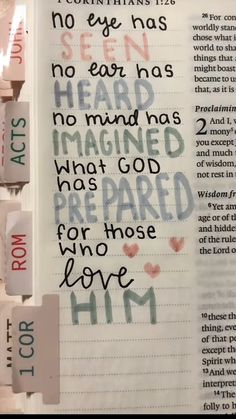 1 CORINTHIANS 1:26
no eye has
SEEN
no ear has
HEARD
no mind has
IMAGINED
what GOD
has
PREPARED
for those
who
love
HIM
JOHN
ACTS
ROM
1 COR
26 For con
worldly stand
chose what i
world to sha
things that a
might boast
became to us
that, as it is
Proclaimin
2 And I, w
mony
you except
and much t
of wisdom,
not rest in t
Wisdom fr
6 Yet am
age or of th
and hidden
of the rule
the Lord o
10 these th
thing, eve
of that p
except th
Spirit wh
13 And we
interpret
14 The
folly to h